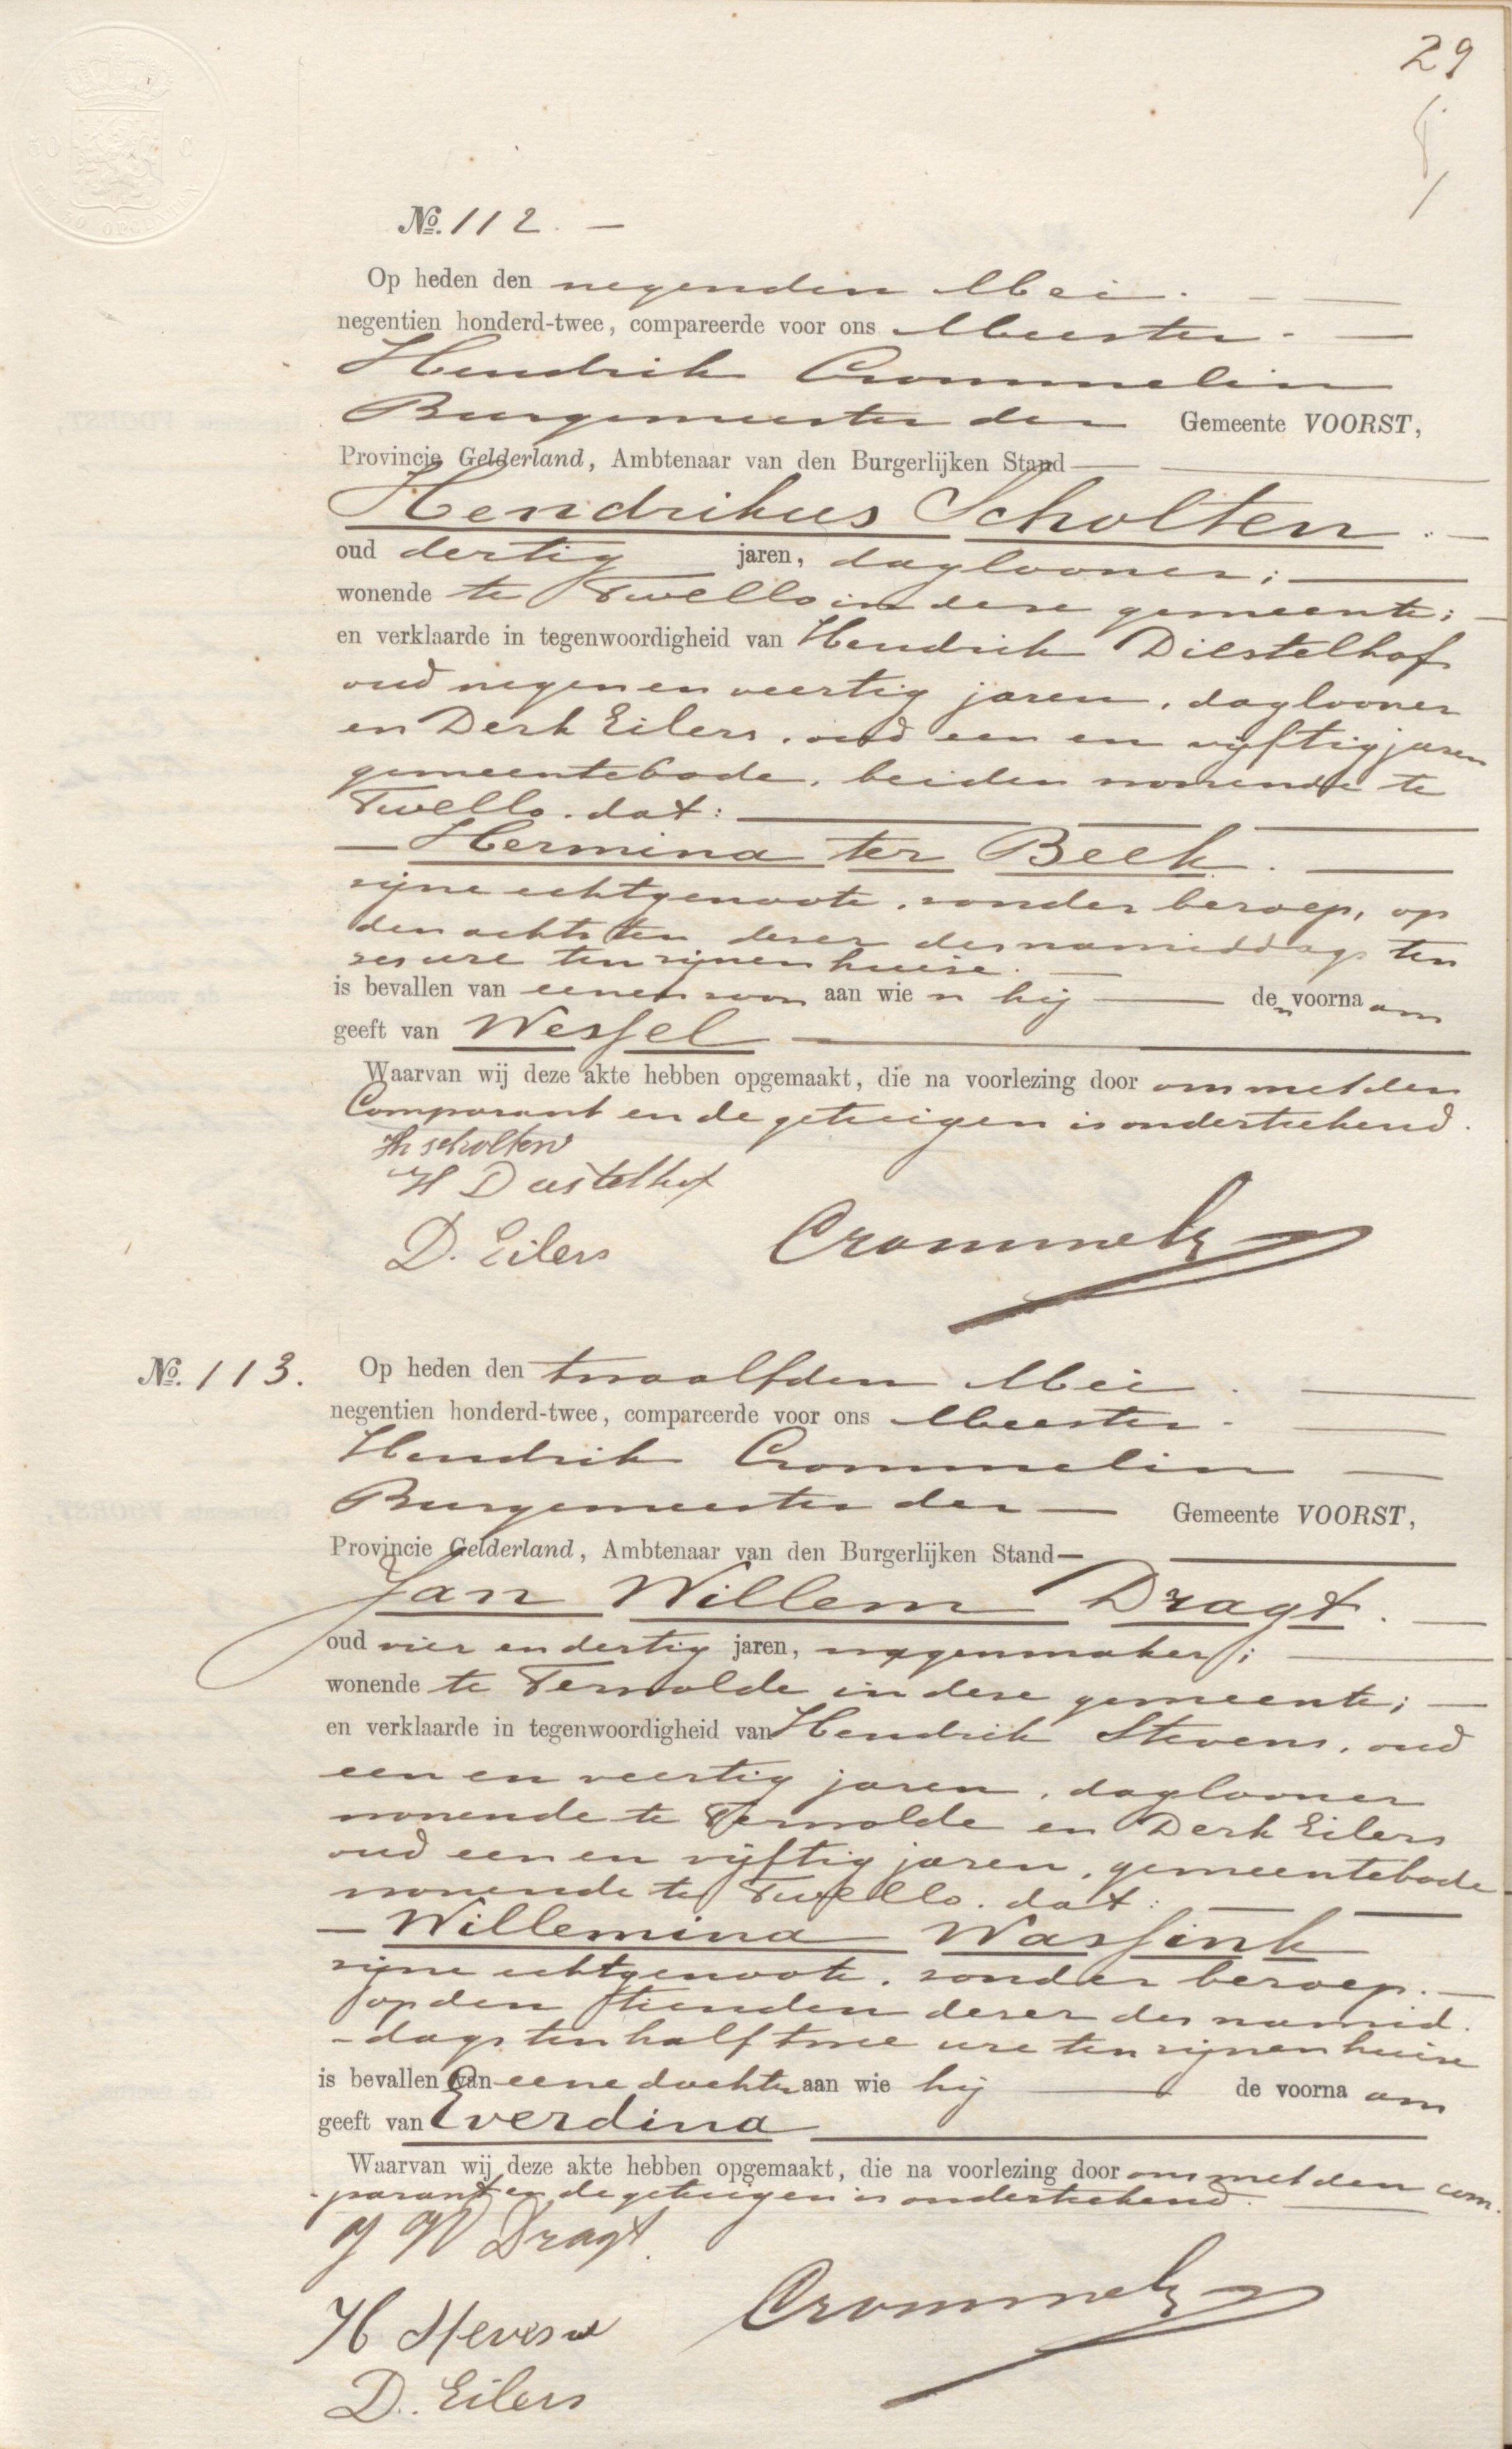 29
No. 112. —
Op heden den negenden Mei. —
negentien honderd-twee, compareerde voor ons Meester. —
Hendrik Crommelin
Burgemeester der Gemeente VOORST,
Provincie Gelderland, Ambtenaar van den Burgerlijken Stand —
Hendrikus Scholten. —
oud dertig jaren, daglooner; —
wonende te Twello in deze gemeente; —
en verklaarde in tegenwoordigheid van Hendrik Diestelhof
oud negen en veertig jaren, daglooner
en Derk Eilers, oud een en vijftig jaren
gemeentebode, beiden wonende te
Twello. dat: —
— Hermina ter Beek. —
zijne echtgenoote, zonder beroep, op
den achtsten dezer des namiddags ten
zes ure ten zijnen huize. —
is bevallen van eenen zoon aan wien hij — den voornaam
geeft van Wessel —
Waarvan wij deze akte hebben opgemaakt, die na voorlezing door ons met den
Comparant en de getuigen is onderteekend.
H Scholten
H Diestelhof
D. Eilers Crommelin
No. 113. Op heden den twaalfden Mei. —
negentien honderd-twee, compareerde voor ons Meester. —
Hendrik Crommelin —
Burgemeester der — Gemeente VOORST,
Provincie Gelderland, Ambtenaar van den Burgerlijken Stand —
Jan Willem Dragt. —
oud vier en dertig jaren, wagenmaker; —
wonende te Terwolde in deze gemeente; —
en verklaarde in tegenwoordigheid van Hendrik Stevens, oud
een en veertig jaren, daglooner
wonende te Terwolde en Derk Eilers
oud een en vijftig jaren, gemeentebode
wonende te Twello. dat: —
— Willemina Wassink
zijne echtgenoote, zonder beroep. —
op den tienden dezer des namid-
-dags ten half twee ure ten zijnen huize
is bevallen van eene dochter aan wie hij — de voornaam
geeft van Everdina —
Waarvan wij deze akte hebben opgemaakt, die na voorlezing door ons met den com-
-parant en de getuigen is onderteekend. —
J W Dragt.
H Stevens Crommelin
D. Eilers